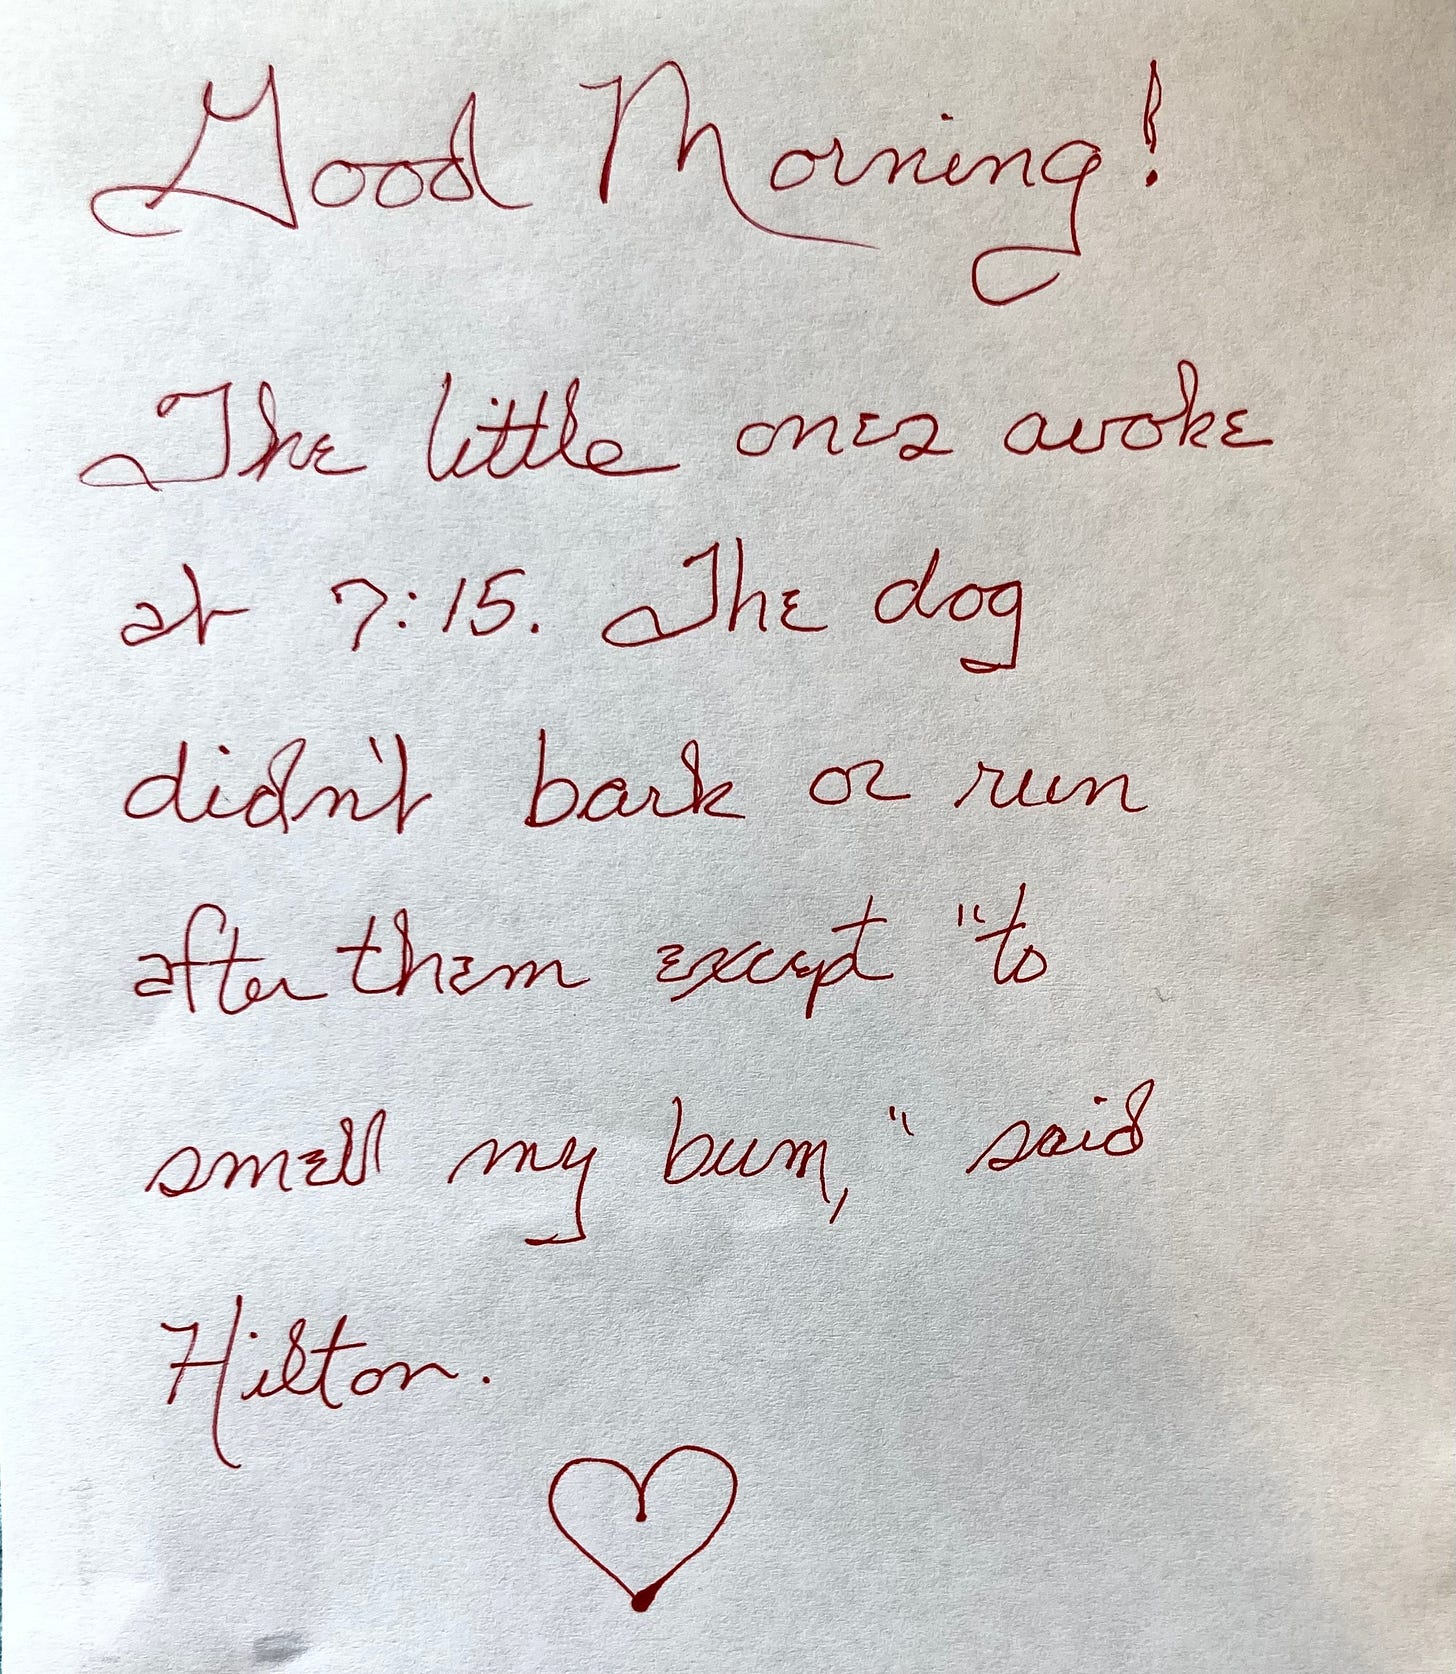 Good Morning!
The little ones awoke
at 7:15. The dog
didn't bark or run
after them except "to
smell my bum," said
Hilton.